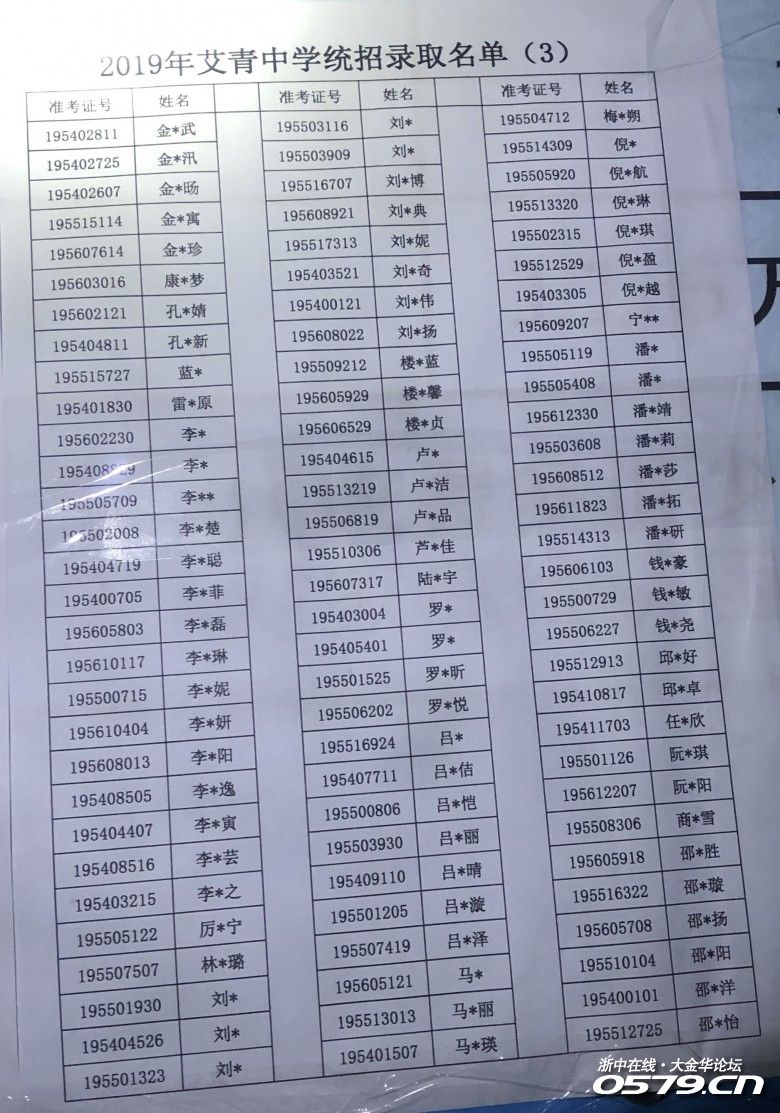 2019年艾青中学统招录取名单（3）
准考证号 姓名
195402811 金*武
195402725 金*汛
195402607 金*旸
195515114 金*寓
195607614 金*珍
195603016 康*梦
195602121 孔*婧
195404811 孔*新
195515727 蓝*
195401830 雷*原
195602230 李*
李*
195505709 李**
195502008 李*楚
195404719 李*聪
195400705 李*菲
195605803 李*磊
195610117 李*琳
195500715 李*妮
195610404 李*妍
195608013 李*阳
195408505 李*逸
195404407 李*寅
195408516 李*芸
195403215 李*之
195505122 厉*宁
195507507 林*璐
195501930 刘*
195404526 刘*
195501323 刘*
准考证号 姓名
195503116 刘*
195503909 刘*
195516707 刘*博
195608921 刘*典
195517313 刘*妮
195403521 刘*奇
195400121 刘*伟
195608022 刘*扬
195509212 楼*蓝
195605929 楼*馨
195606529 楼*贞
195404615 卢*
195513219 卢*洁
195506819 卢*品
195510306 芦*佳
195607317 陆*宇
195403004 罗*
195405401 罗*
195501525 罗*昕
195506202 罗*悦
195516924 吕*
195407711 吕*佶
195500806 吕*恺
195503930 吕*丽
195409110 吕*晴
195501205 吕*漩
195507419 吕*泽
195605121 马*
195513013 马*丽
195401507 马*瑛
准考证号 姓名
195504712 梅*朔
195514309 倪*
195505920 倪*航
195513320 倪*琳
195502315 倪*琪
195512529 倪*盈
195403305 倪*越
195609207 宁**
195505119 潘*
195505408 潘*
195612330 潘*靖
195503608 潘*莉
195608512 潘*莎
195611823 潘*拓
195514313 潘*研
195606103 钱*豪
195500729 钱*敏
195506227 钱*尧
195512913 邱*好
195410817 邱*卓
195411703 任*欣
195501126 阮*琪
195612207 阮*阳
195508306 商*雪
195605918 邵*胜
195516322 邵*璇
195605708 邵*扬
195510104 邵*阳
195400101 邵*洋
195512725 邵*怡
浙中在线·大金华论坛
0579.CN